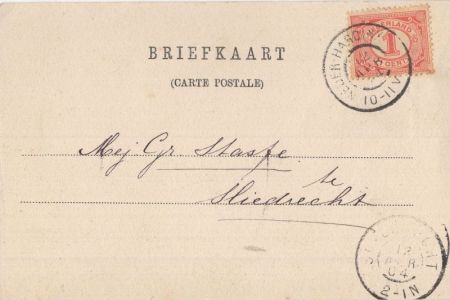 BRIEFKAART
(CARTE POSTALE)
NEDERLAND
1
CENT
NEDER-HARDINXVELD
10-11V
Mej Gr Stasse
te
Sliedrecht
SLIEDRECHT
12
APR
04
2-1N